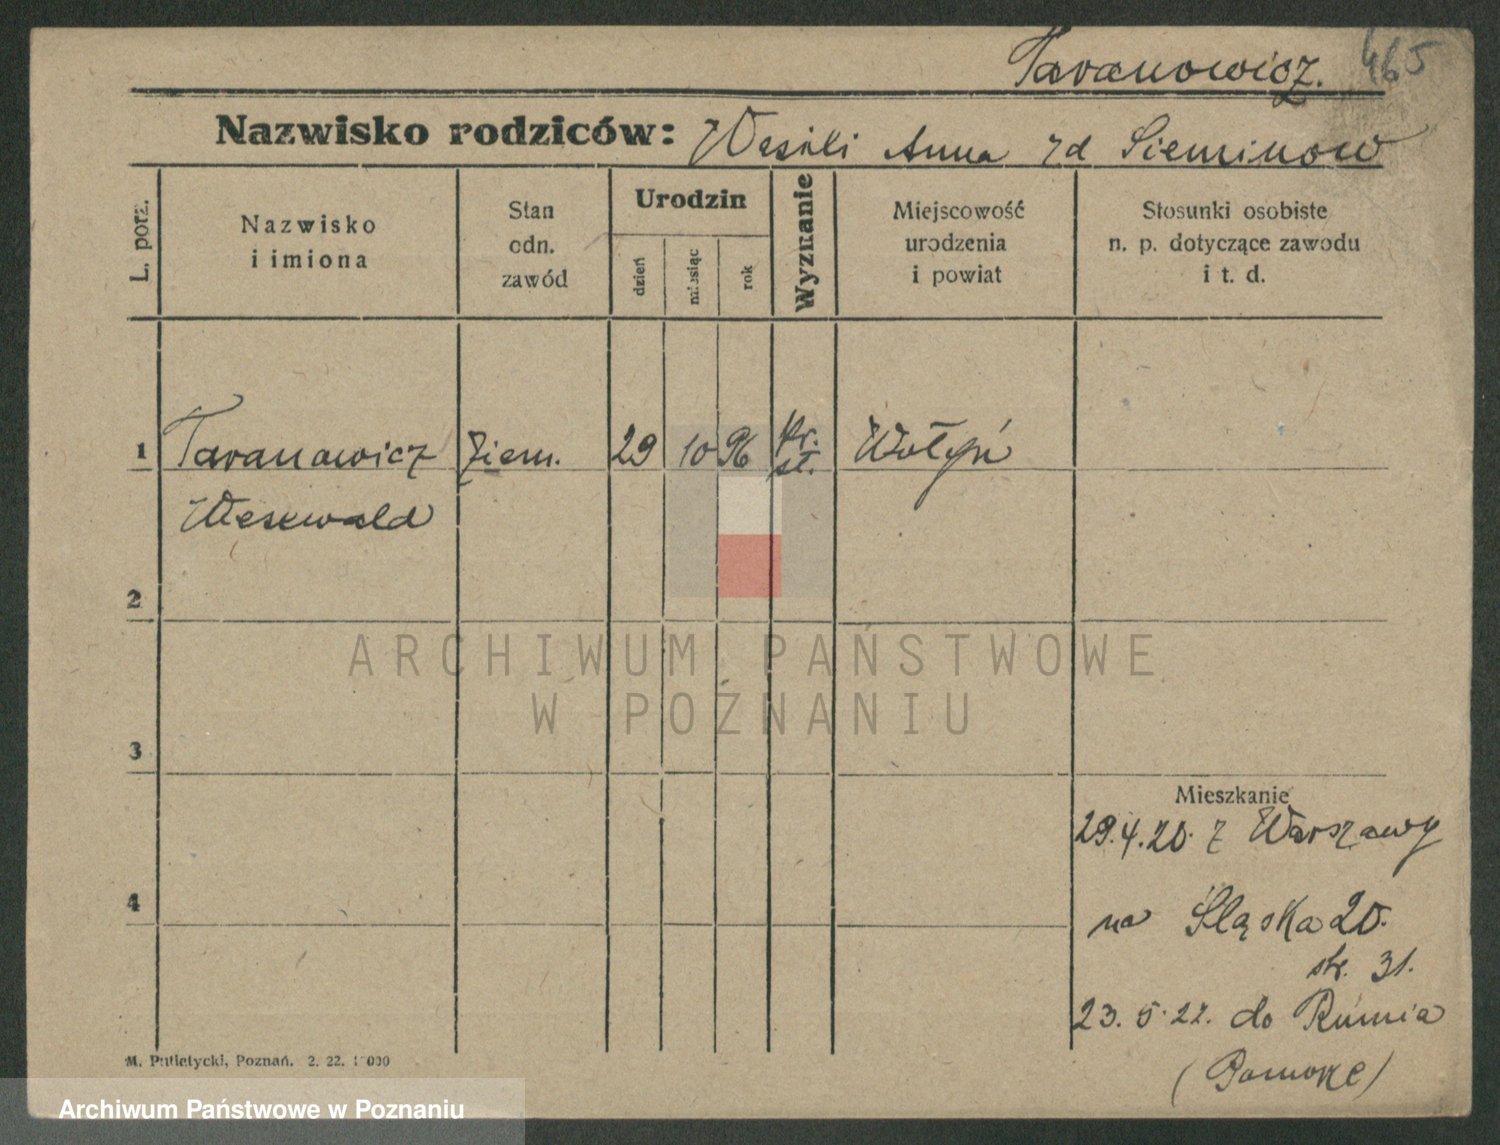 Taranowicz. 465
Nazwisko rodziców: Wasili Anna zd Sieminow
L. porz.
Nazwisko
i imiona
Stan
odn.
zawód
Urodzin
dzień
miesiąc
rok
Wyznanie
Miejscowość
urodzenia
i powiat
Stosunki osobiste
n. p. dotyczące zawodu
i t. d.
1 Taranowicz Ziem. 29 10 96 pr. Wołyń
st.
2
3
4
Mieszkanie
29.4.20. z Warszawy
na Śląska 20.
str. 31.
23. 5. 22. do Rumia
(Pomorze)
M. Putiatycki, Poznań. 2. 22.
ARCHIWUM PAŃSTWOWE
W POZNANIU
Archiwum Państwowe w Poznaniu